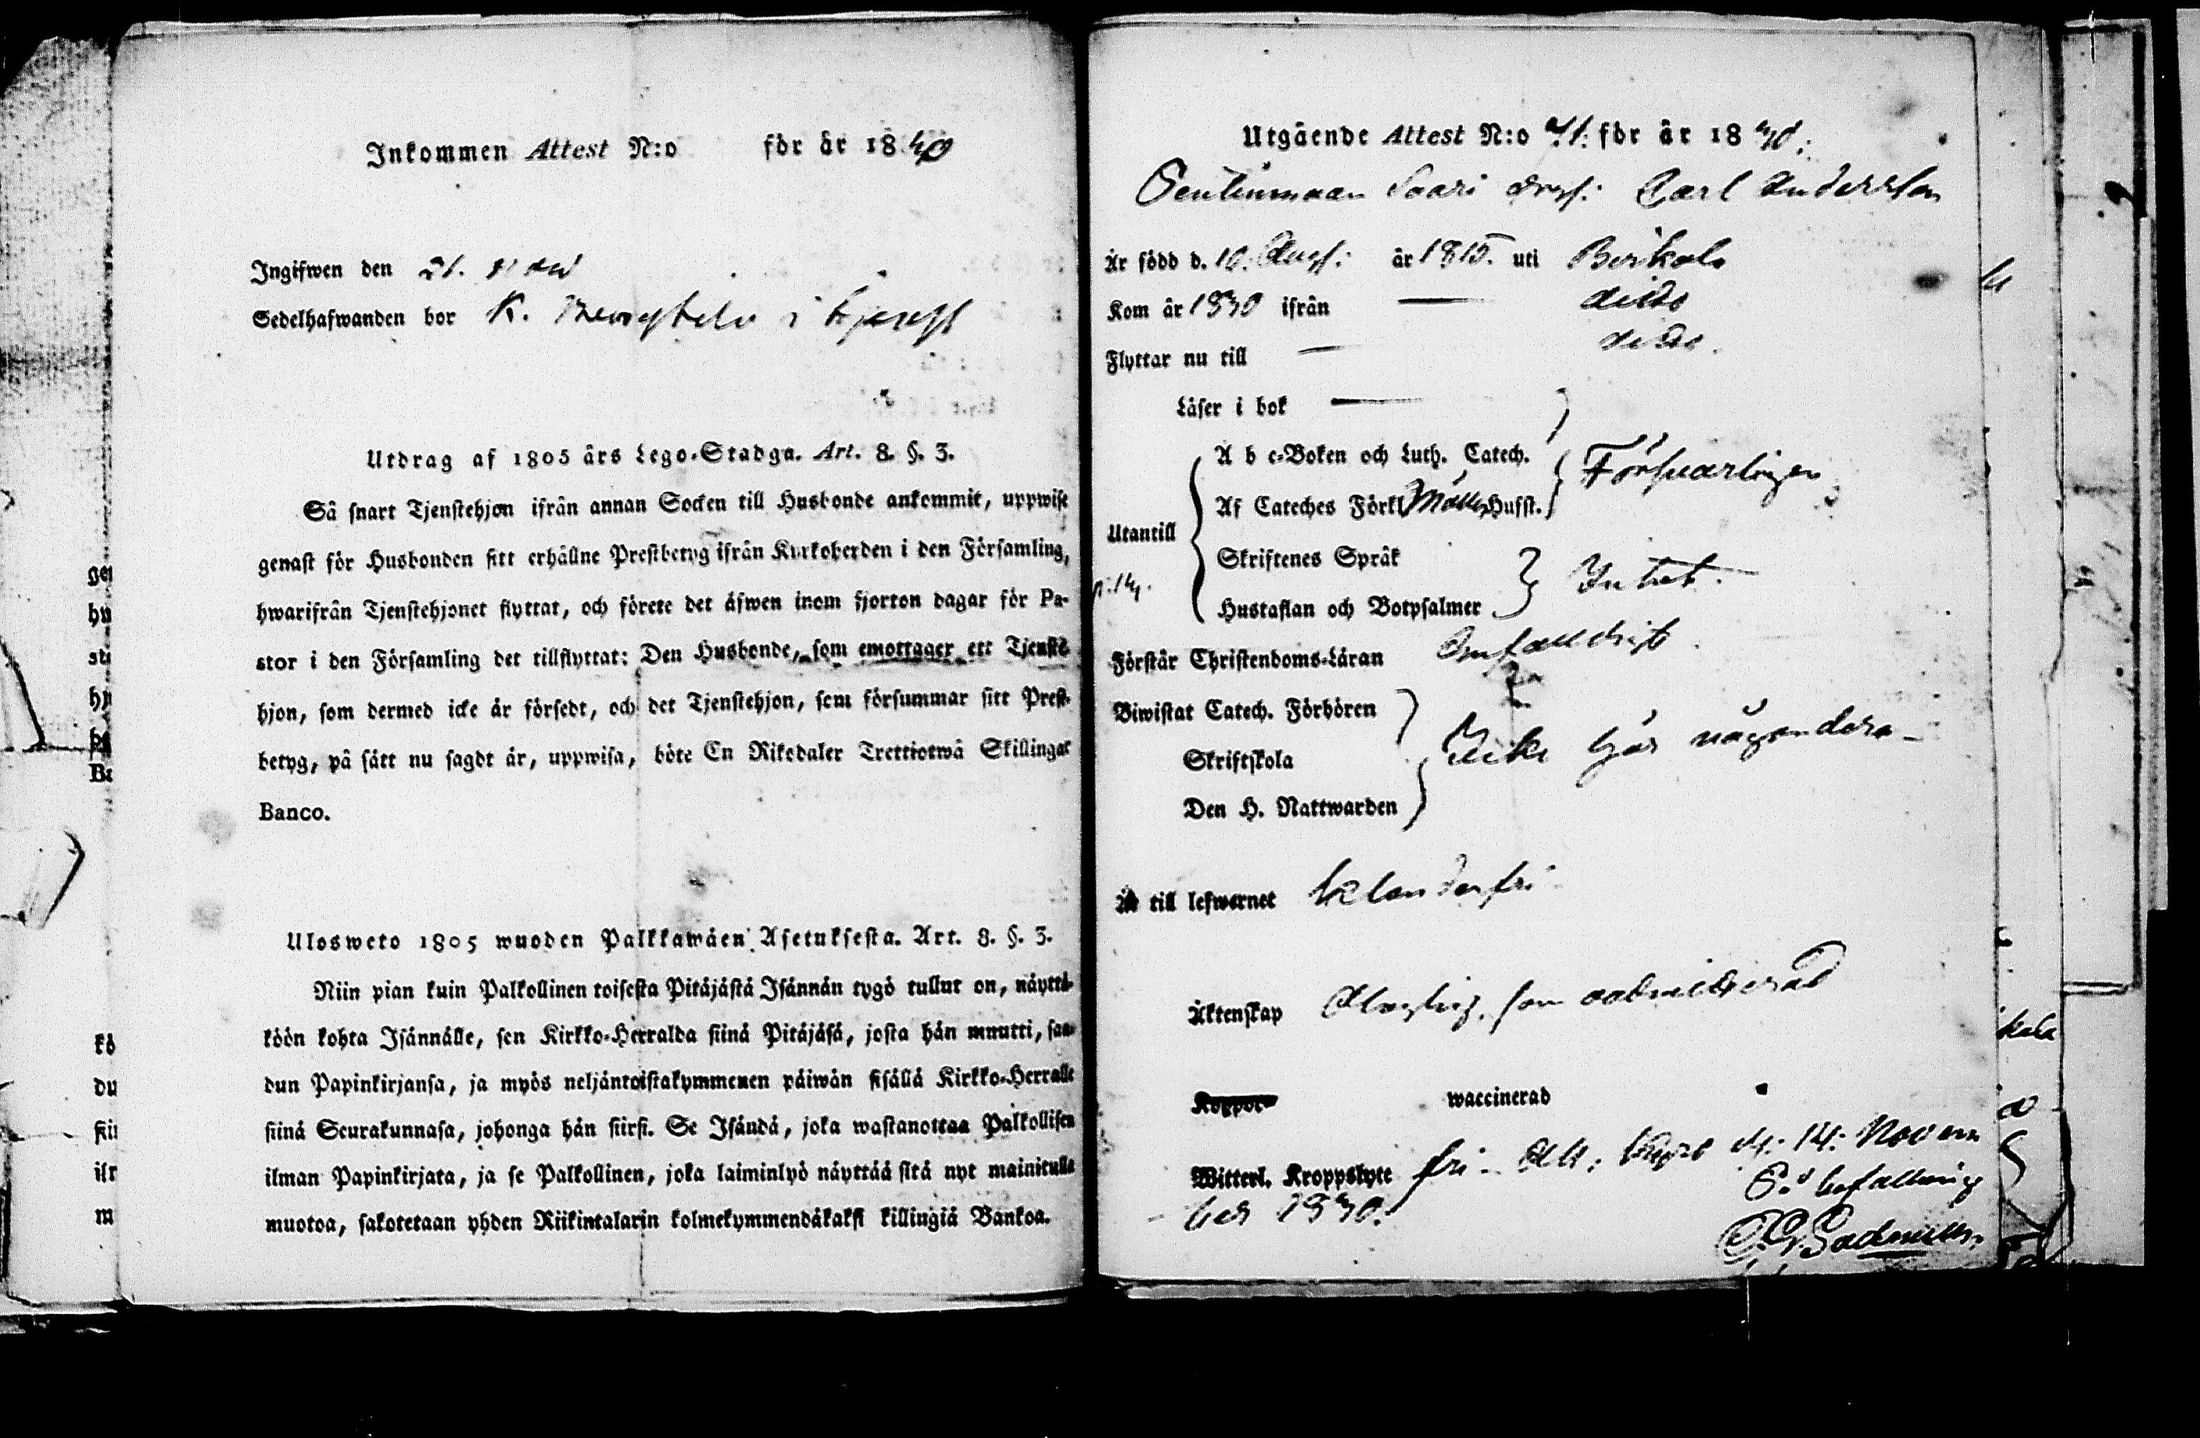 Inkommen Attest N:o för år 18
Ingifwen den 21.
Sedelhafwanden bor K. i
Utdrag af 1805 års Lego-Stadga. Art. 8. §. 3.
Så snart Tjenstehjon ifrån annan Socken till Husbonde ankommit, uppwise
genast för Husbonden sitt erhållne Prestbetyg ifrån Kyrkoherden i den Församling,
hwarifrån Tjenstehjonet flyttat, och förete det äfwen inom fjorton dagar för Pa-
stor i den Församling det tillflyttat: Den Husbonde, som emottager ett Tjenste
hjon, som dermed icke är försedt, och det Tjenstehjon, som försummar sitt Prest-
betyg, på sätt nu sagdt är, uppwisa, böte En Riksdaler Trettiotwå Skillingar
Banco.
Ulosweto 1805 wuoden Palkkawäen Asetuksesta. Art. 8. §. 3.
Niin pian kuin Palkollinen toisesta Pitäjästä Isännän tygö tullut on, näyttä-
köön kohta Isännälle, sen Kirkko-Herralda siinä Pitäjäsä, josta hän muutti, saa-
dun Papinkirjansa, ja myös neljäntoistakymmenen päiwän sisällä Kirkko-Herralle
siinä Seurakunnasa, johonga hän siirsi. Se Isändä, joka wastanottaa Palkollisen
ilman Papinkirjata, ja se Palkollinen, joka laiminlyö näyttää sitä nyt mainitulla
muotoa, sakotetaan yhden Riikintalarin kolmekymmendäkaksi killingiä Bankoa.
Utgående Attest N:o för år 18
Saari Carl Andersson
Är född d. 10. Aug: år 1815. uti Birkala
Kom år 1830 ifrån — dito
Flyttar nu till — dito.
Läser i bok
A b c-Boken och Luth. Catech.
Af Cateches Förkl Husst. Försvarligen
Utantill
Skriftenes Språk
Hustaflan och Botpsalmer Intet.
Förstår Christendoms-Läran Enfaldigt.
Biwistat Catech. Förhören
Skriftskola Icke här någondera
Den H. Nattwarden
Är till lefwernet klanderfri
Äktenskap som oadmitterad
Koppor waccinerad
Witterl. Kroppslyte fri. d. 14: Novem
ber 1830. På befallning